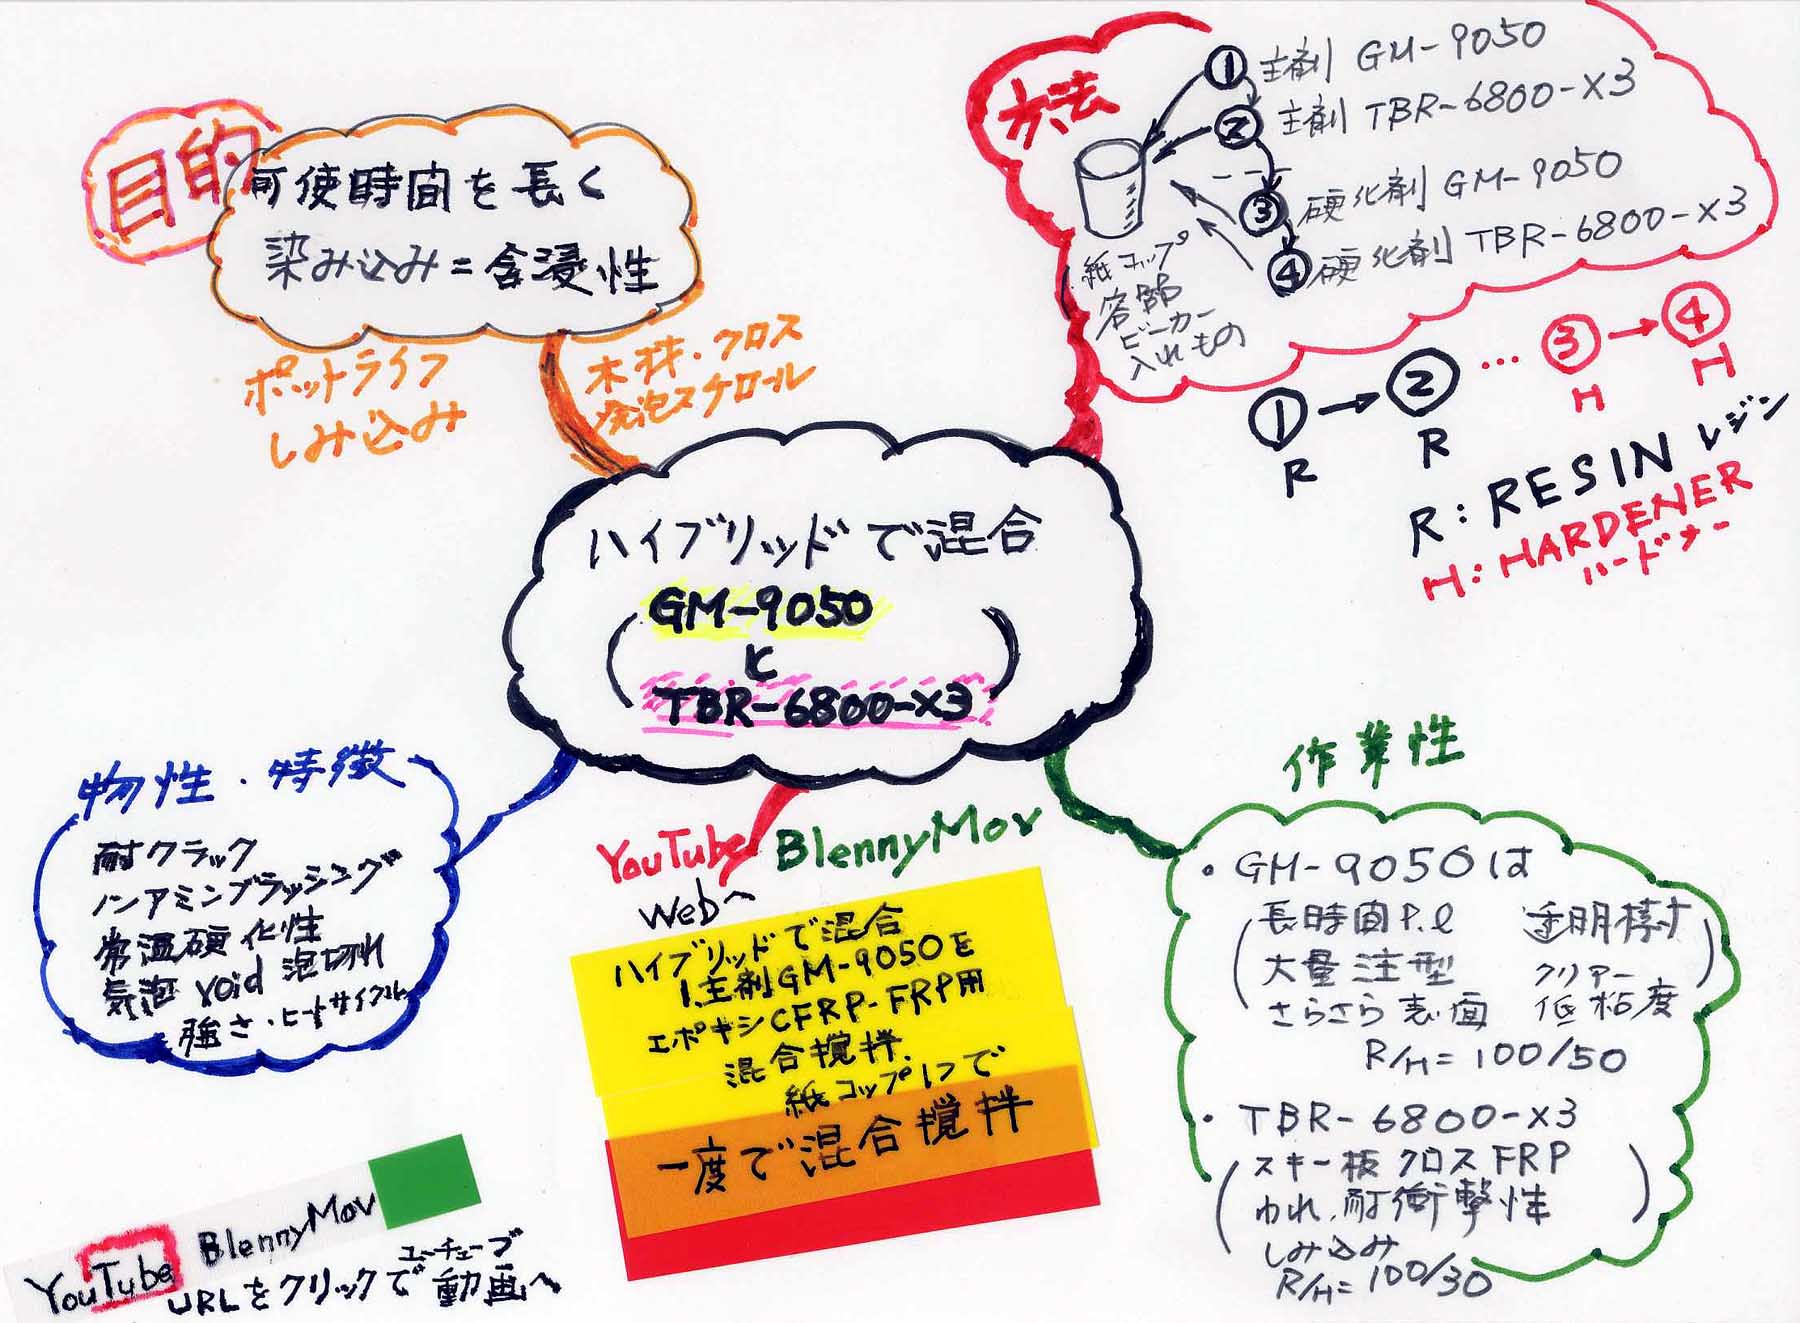 目的
可使時間を長く
染み込み=含浸性
ポットライフ
しみ込み
木材・クロス
発泡スチロール
方法
① 主剤 GM-9050
② 主剤 TBR-6800-X3
③ 硬化剤 GM-9050
④ 硬化剤 TBR-6800-X3
紙コップ
容器
ビーカー
入れもの
①→②…③→④
R R H H
R:RESIN レジン
H:HARDENER
ハードナー
ハイブリッドで混合
GM-9050
と
TBR-6800-X3
物性・特徴
耐クラック
ノンアミンブラッシング
常温硬化性
気泡 void 泡切れ
強さ・ヒートサイクル
YouTube BlennyMov
Webへ
ハイブリッドで混合
1.主剤GM-9050を
エポキシCFRP-FRP用
混合攪拌.
紙コップ1つで
一度で混合攪拌
作業性
・GM-9050は
(長時間P.l 透明棒)
大量注型 クリアー
さらさら表面 低粘度
R/H=100/50
・TBR-6800-X3
(スキー板クロスFRP)
われ、耐衝撃性
しみ込み
R/H=100/30
YouTube BlennyMov
ユーチューブ
URLをクリックで動画へ